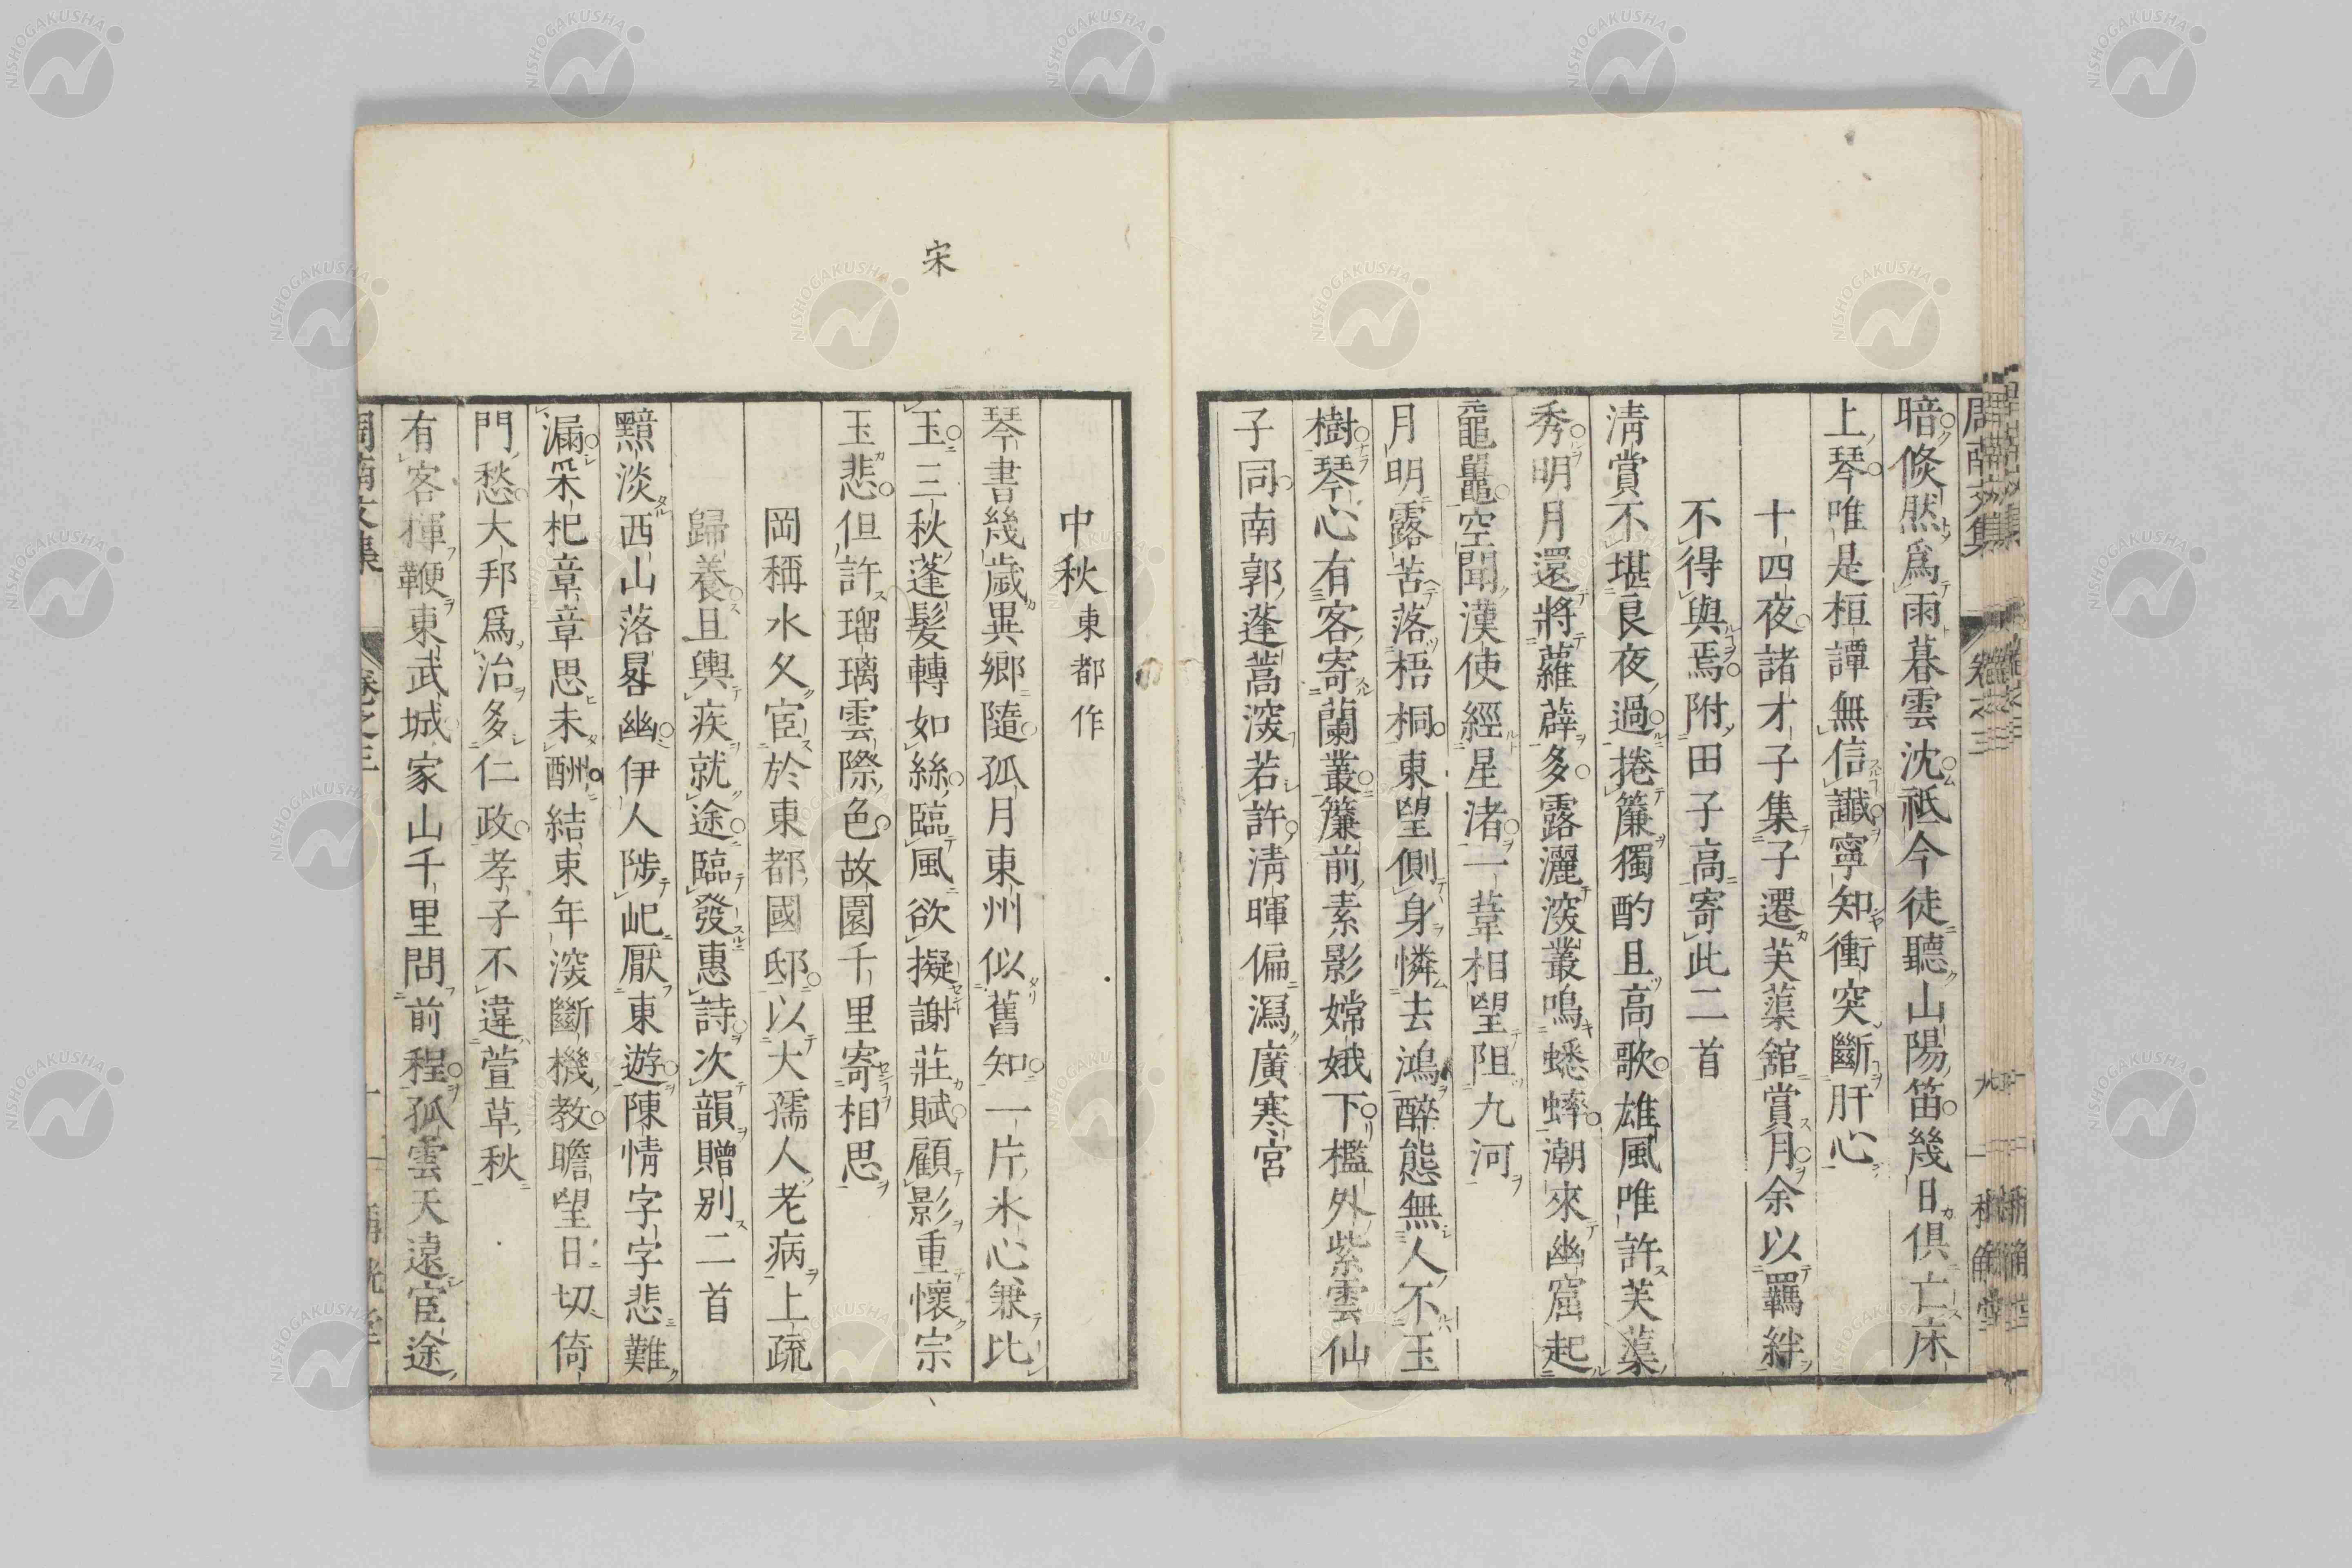 暗倏然爲雨暮雲沈祇今徒聽山陽笛幾日俱亡床
上琴唯是桓譚無信讖寧知衝突斷肝心
十四夜諸才子集子遷芙蕖舘賞月余以羈絆
不得與焉附田子高寄此二首
淸賞不堪良夜過捲簾獨酌且高歌雄風唯許芙蕖
秀明月還將蘿薜多露灑深叢鳴蟋蟀潮來幽窟起
黿鼉空聞漢使經星渚一葦相望阻九河
月明露苦落梧桐東望側身憐去鴻醉態無人不玉
樹琴心有客寄蘭叢簾前素影嫦娥下檻外紫雲仙
子同南郭蓬蒿深若許淸暉偏瀉廣寒宮
宋
中秋東都作
琴書幾歲異鄉隨孤月東州似舊知一片氷心兼比
玉三秋蓬髮轉如絲臨風欲擬謝莊賦顧影重懷宗
玉悲但許瑠璃雲際色故園千里寄相思
岡稱水久宦於東都國邸以大孺人老病上疏
歸養且輿疾就途臨發惠詩次韻贈別二首
黯淡西山落晷幽伊人陟屺厭東遊陳情字字悲難
漏采杞章章思未酬結束年深斷機教瞻望日切倚
門愁大邦爲治多仁政孝子不違萱草秋
有客揮鞭東武城家山千里問前程孤雲天遠宦途